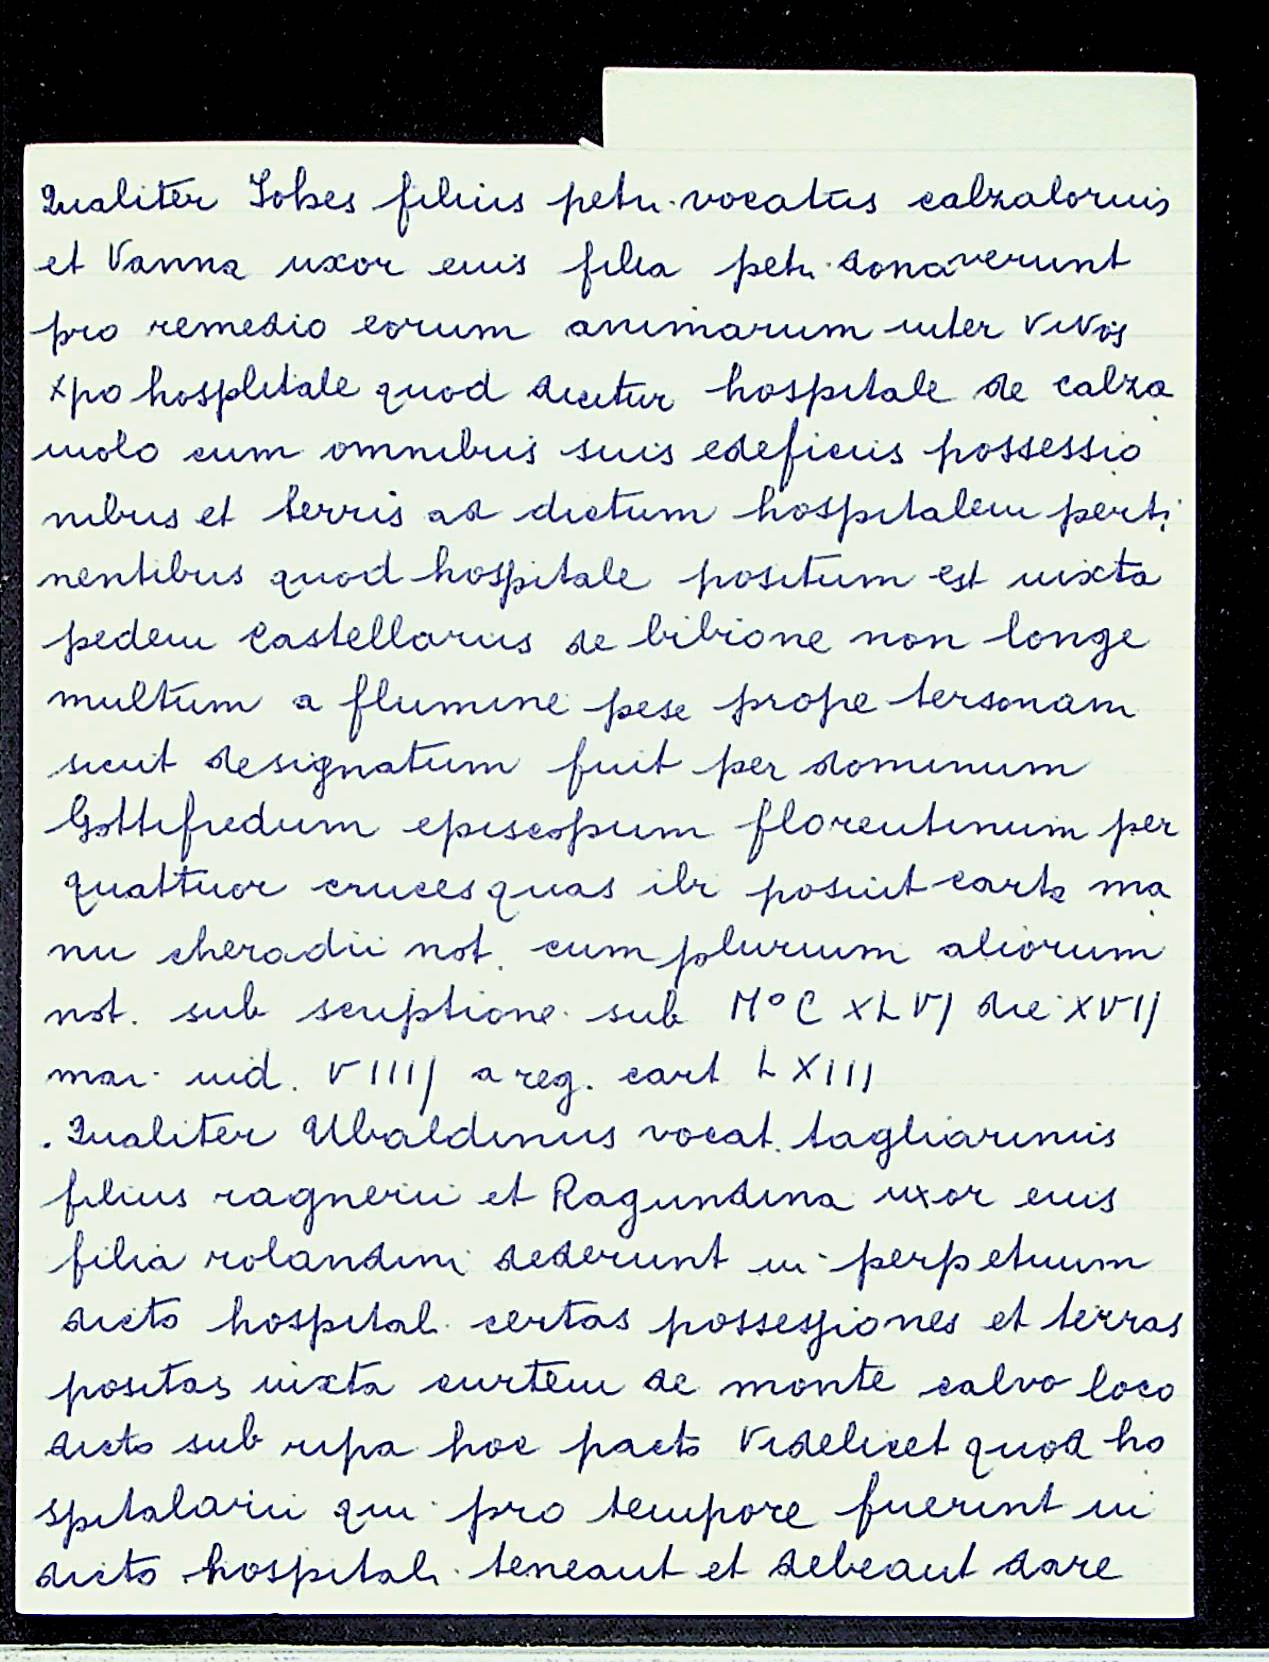 Qualiter Johes filius petri vocatus calzalorius
et Vanna uxor eius filia petri donaverunt
pro remedio eorum animarum inter vivos
xpo hospitale quod dicitur hospitale de calza
iuolo cum omnibus suis edeficiis possessio
nibus et terris ad dictum hospitalem perti
nentibus quod hospitale positum est iuxta
pedem Castellarius de bibione non longe
multum a flumine pese prope tersonam
sicut designatum fuit per dominum
Gottifredum episcopum florentinum per
quattuor cruces quas ibi posuit carta ma
nu cheradii not. cum plurium aliorum
not. sub scriptione sub M° C XLVJ die XVIJ
mai ind. VIIIJ a reg. cart LXIIJ
. Qualiter Ubaldinus vocat. tagliarinus
filius ragnerii et Ragundina uxor eius
filia rolandini dederunt in perpetuum
dicto hospitali certas possessiones et terras
positas iuxta curtem de monte calvo loco
dicto sub ripa hoc pacto Videlicet quod ho
spitalarii qui pro tempore fuerint in
dicto hospitali teneant et debeant dare